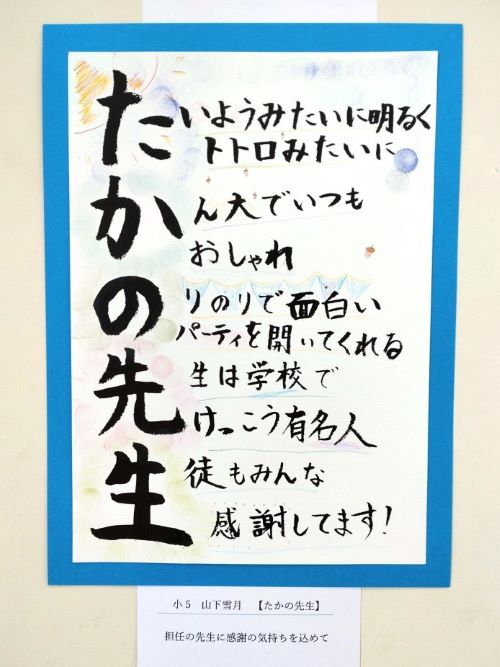 たいようみたいに明るく
トトロみたいに
かん大でいつも
おしゃれ
のりのりで面白い
パーティを開いてくれる
先生は学校で
けっこう有名人
生徒もみんな
感謝してます!
小5 山下雪月 【たかの先生】
担任の先生に感謝の気持ちを込めて